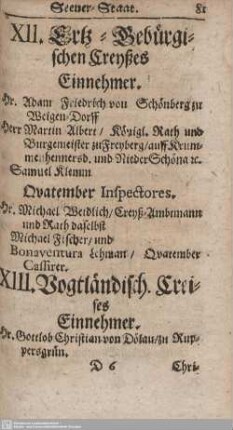 Steuer-Staat. 81
XII. Ertz-Gebürgi-
schen Creyßes
Einnehmer.
Hr. Adam Friedrich von Schönberg zu
Weigen-Dorff
Herr Martin Albert/ Königl. Rath und
Burgemeister zu Freyberg/ auff Krum-
menhennersd. und Nieder Schöna ꝛc.
Samuel Klemm
Qvatember Inspectores.
Hr. Michael Weidlich/ Creyß-Ambtmann
und Rath daselbst
Michael Fischer/ und
Bonaventura Lehman/ Qvatember
Cassirer.
XIII. Vogtländisch. Crei-
ses
Einnehmer.
Hr. Gottlob Christian von Dölau/ zu Rup-
persgrün.
D 6 Chri-